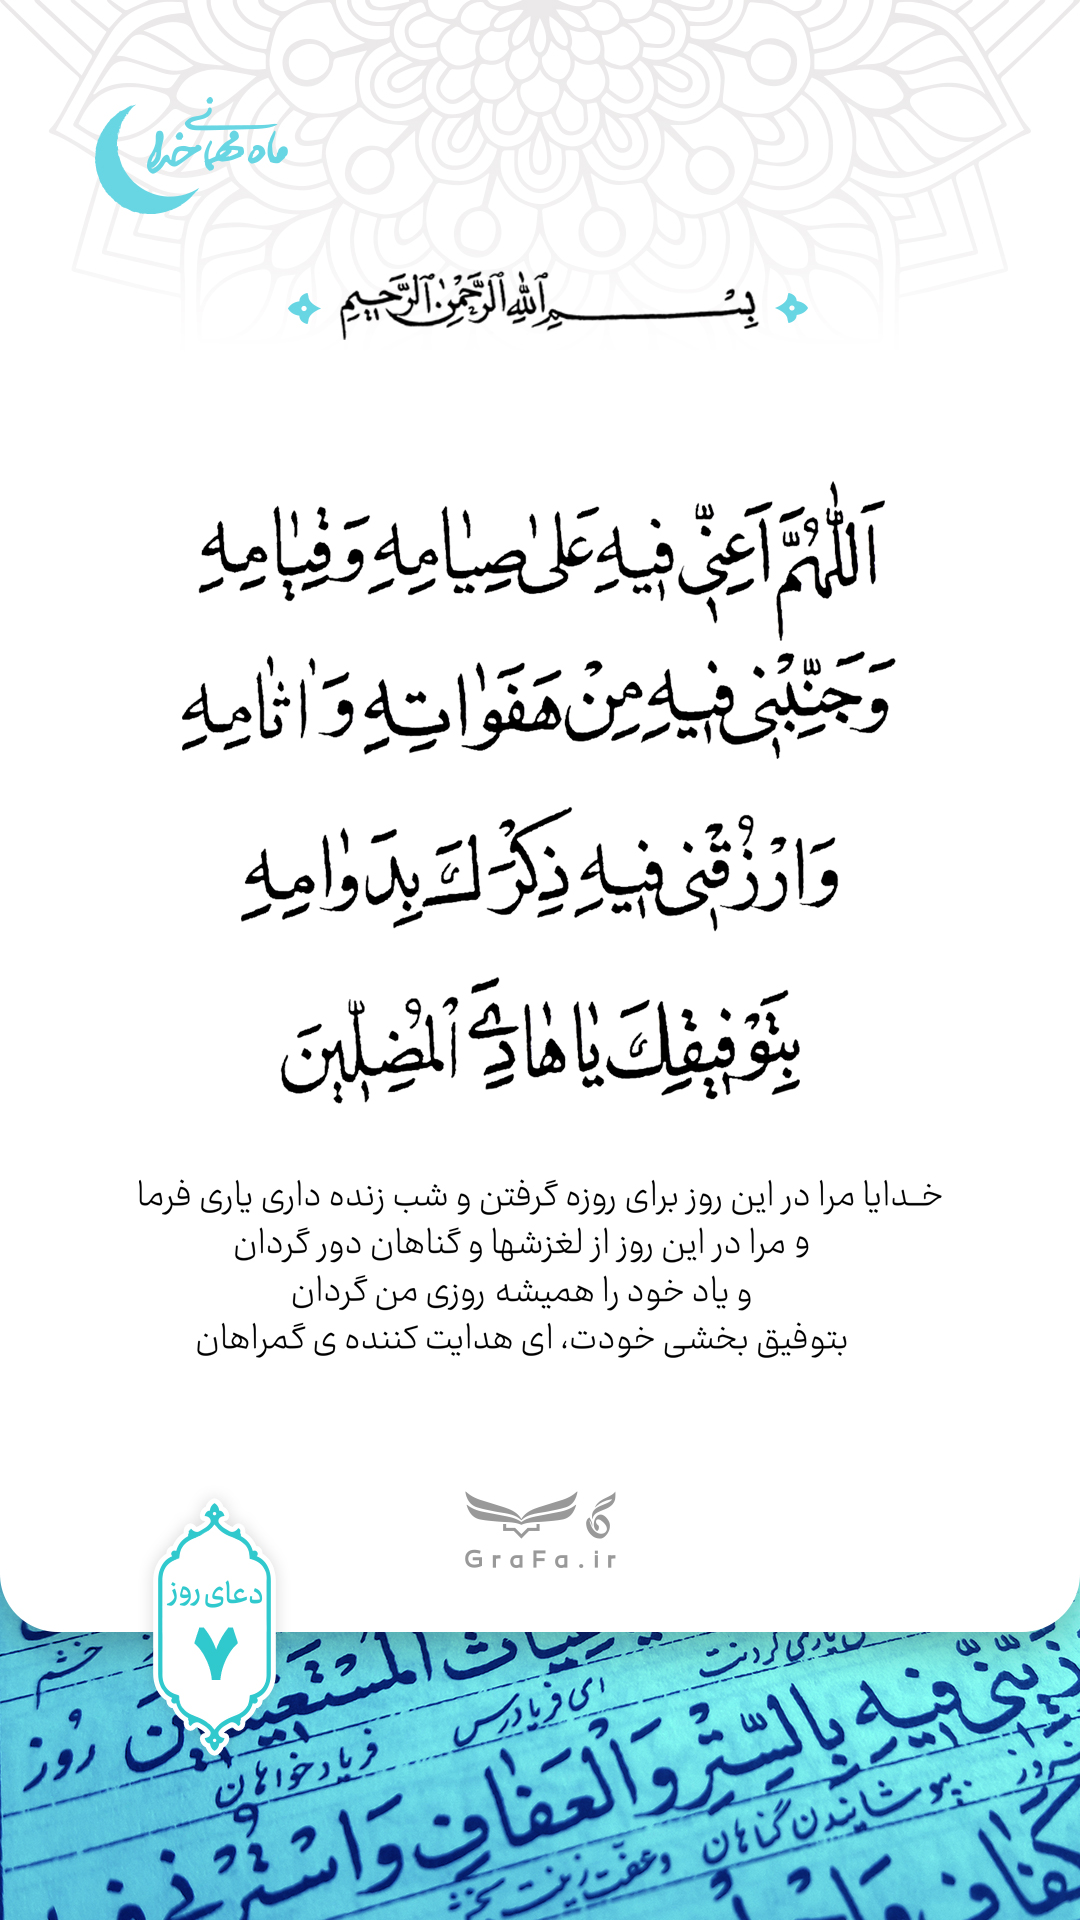 ماه مهمانی خدا
بِسْمِ ٱللّٰهِ ٱلرَّحْمٰنِ ٱلرَّحِیمِ
اَللّٰهُمَّ اَعِنّی فیهِ عَلیٰ صِیٰامِهِ وَ قِیٰامِهِ
وَ جَنِّبْنی فیهِ مِنْ هَفَوٰاتِهِ وَ اٰثٰامِهِ
وَارْزُقْنی فیهِ ذِکْرَکَ بِدَوٰامِهِ
بِتَوْفیقِکَ یٰا هٰادِیَ ٱلْمُضِلّینَ
خـدایا مرا در این روز برای روزه گرفتن و شب زنده داری یاری فرما
و مرا در این روز از لغزشها و گناهان دور گردان
و یاد خود را همیشه روزی من گردان
بتوفیق بخشی خودت، ای هدایت کننده ی گمراهان
GraFa.ir
دعای روز
۷
الْمُسْتَغیثینَ روز
ای فریادرس فریاد خواهان
فیهِ بِالسِّتْرِ وَالْعَفٰافِ وَاسْتُرْنی
بپوشانیدن گناهان وعفّت زینت بخش